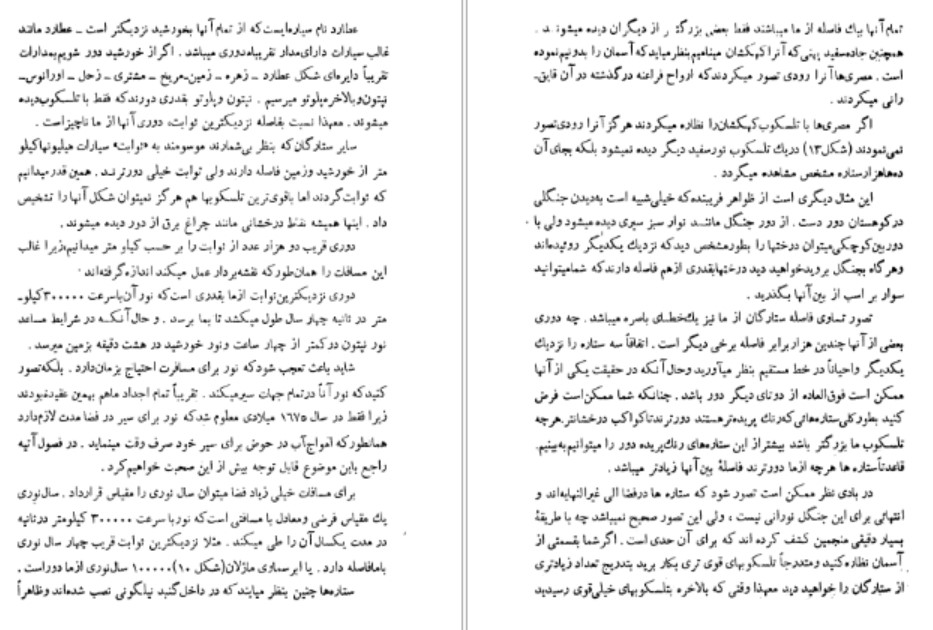 عطارد نام سیاره‌ایست که از تمام آنها بخورشید نزدیکتر است ـ عطارد مانند
غالب سیارات دارای مدار تقریبا مدوری میباشد . اگر از خورشید دور شویم بمدارات
تقریباً دایره‌ای شکل عطارد ـ زهره ـ زمین ـ مریخ ـ مشتری ـ زحل ـ اورانوس ـ
نپتون وبالاخره پلوتو میرسیم . نپتون وپلوتو بقدری دورند که فقط با تلسکوپ دیده
میشوند . معهذا نسبت بفاصله نزدیکترین ثوابت، دوری آنها از ما ناچیز است .
سایر ستارگان که بنظر بی‌شمارند موسومند به «ثوابت» سیارات میلیونها کیلو
متر از خورشید وزمین فاصله دارند ولی ثوابت خیلی دورترند . همین قدر میدانیم
که ثوابت گردند اما باقوی‌ترین تلسکوپها هم هرگز نمیتوان شکل آنها را تشخیص
داد . اینها همیشه نقط درخشانی مانند چراغ برق از دور دیده میشوند .
دوری قریب دو هزار عدد از ثوابت را بر حسب کیلو متر میدانیم زیرا غالب
این مسافات را همان‌طور که نقشه‌بردار عمل میکند اندازه گرفته‌اند
دوری نزدیکترین ثوابت ازما بقدری است که نور آن باسرعت ۳۰۰۰۰۰ کیلو ـ
متر در ثانیه چهار سال طول میکشد تا بما برسد . و حال آنکه در شرایط مساعد
نور نپتون در کمتر از چهار ساعت ونور خورشید در هشت دقیقه بزمین میرسد .
شاید باعث تعجب شود که نور برای مسافرت احتیاج بزمان دارد . بلکه تصور
کنید که نور آناً در تمام جهات سیر میکند . تقریباً تمام اجداد ماهم بهمین عقیده بودند
زیرا فقط در سال ۱۶۷۵ میلادی معلوم شد که نور برای سیر در فضا مدت لازم دارد
همانطور که امواج آب در حوض برای سیر خود صرف وقت مینماید . در فصول آتیه
راجع باین موضوع قابل توجه بیش از این صحبت خواهیم کرد .
برای مسافات خیلی زیاد فضا میتوان سال نوری را مقیاس قرار داد . سال نوری
یك مقیاس فرضی ومعادل با مسافتی است که نور با سرعت ۳۰۰۰۰۰ کیلومتر در ثانیه
در مدت یکسال آن را طی میکند . مثلا نزدیکترین ثوابت قریب چهار سال نوری
باما فاصله دارد . یا ابر سماوی ماژلان (شکل ۱۰) ۱۰۰۰۰۰ سال نوری ازما دور است .
ستاره‌ها چنین بنظر میایند که در داخل گنبد نیلگونی نصب شده‌اند وظاهراً
تمام آنها بیك فاصله از ما میباشند فقط بعضی بزرگتر از دیگران دیده میشوند .
همچنین جاده سفید پهنی که آنرا کهکشان مینامیم بنظر میاید که آسمان را بدو نیم نموده
است . مصری‌ها آنرا رودی تصور میکردند که ارواح فراعنه درگذشته در آن قایق ـ
رانی میکردند .
اگر مصری‌ها با تلسکوپ کهکشان را نظاره میکردند هرگز آنرا رودی تصور
نمی‌نمودند (شکل ۱۳) در یك تلسکوپ نور سفید دیگر دیده نمیشود بلکه بجای آن
ده‌ها هزار ستاره مشخص مشاهده میگردد .
این مثال دیگری است از ظواهر فریبنده که خیلی شبیه است به دیدن جنگلی
در کوهستان دور دست . از دور جنگل مانند نوار سبز سیری دیده میشود ولی با
دوربین کوچکی میتوان درختها را بطور مشخص دید که نزدیك یکدیگر روئیده‌اند
وهرگاه بجنگل بروید خواهید دید درختها بقدری ازهم فاصله دارند که شما میتوانید
سوار بر اسب از بین آنها بگذرید .
تصور تساوی فاصله ستارگان از ما نیز یك خطای باصره میباشد . چه دوری
بعضی از آنها چندین هزار برابر فاصله برخی دیگر است . اتفاقاً سه ستاره را نزدیك
یکدیگر واحیاناً در خط مستقیم بنظر میآورید وحال آنکه در حقیقت یکی از آنها
ممکن است فوق‌العاده از دوتای دیگر دور باشد . چنانکه شما ممکن است فرض
کنید بطور کلی ستاره‌هائی که رنك پریده‌تر هستند دورترند تا کواکب درخشانتر. هرچه
تلسکوپ ما بزرگتر باشد بیشتر از این ستاره‌های رنك پریده دور را میتوانیم به‌بینیم.
قاعدتاً ستاره ها هرچه ازما دورترند فاصلهٔ بین آنها زیادتر میباشد .
در بادی نظر ممکن است تصور شود که ستاره ها در فضا الی غیرالنهایه‌اند و
انتهائی برای این جنگل نورانی نیست ، ولی این تصور صحیح نمیباشد چه با طریقهٔ
بسیار دقیقی منجمین کشف کرده اند که برای آن حدی است . اگر شما بقسمتی از
آسمان نظاره کنید ومتدرجاً تلسکوپهای قوی تری بکار برید بتدریج تعداد زیادتری
از ستارگان را خواهید دید معهذا وقتی که بالاخره بتلسکوپهای خیلی قوی رسیدید